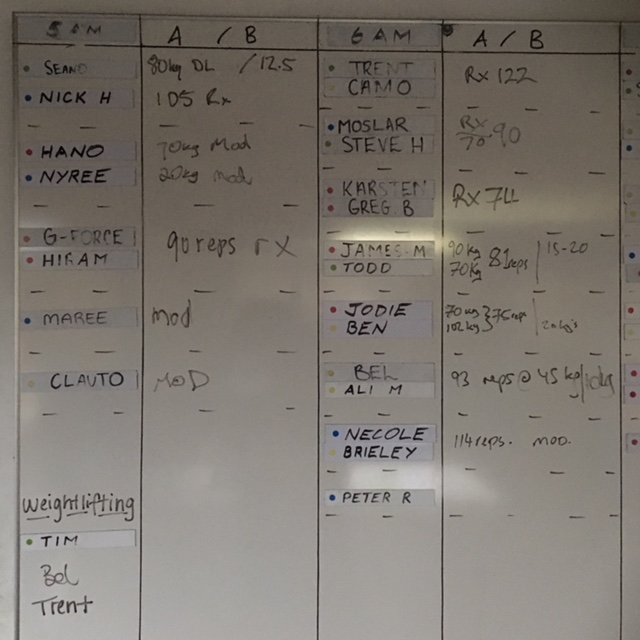 5 AM A / B
SEANO 80kg DL / 12.5
NICK H 105 Rx
HANO 70kg Mod
NYREE 20kg mod
G-FORCE
HIRAM 90 reps rX
MAREE mod
CLAUTO MOD
weightlifting
TIM
Bel
Trent
6 AM A / B
TRENT
CAMO Rx 122
MOSLAR Rx
STEVE H 70 90
KARSTEN
GREG. B Rx 74
JAMES-M 90 kg 81 reps 15-20
TODD 70kg
JODIE 70 kg 75 reps
BEN 102 kg 20kg's
BEL
ALI M 93 reps @ 45 kg/10kg
NECOLE
BRIELEY 114 reps. mod.
PETER R